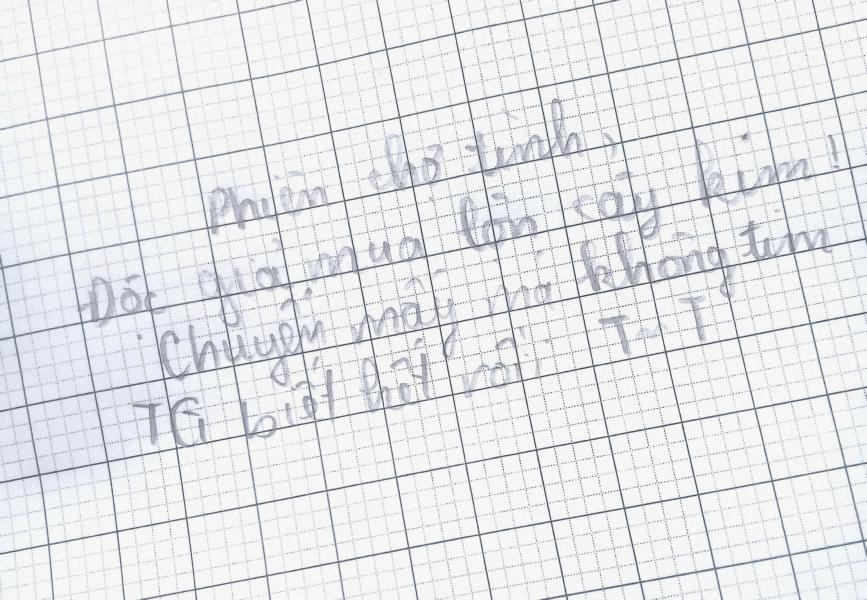 Phiên chợ tình,
Độc giả mua lộn cây kim!
Chuyến mấy mà không tim
TG biết hết rồi! T^T